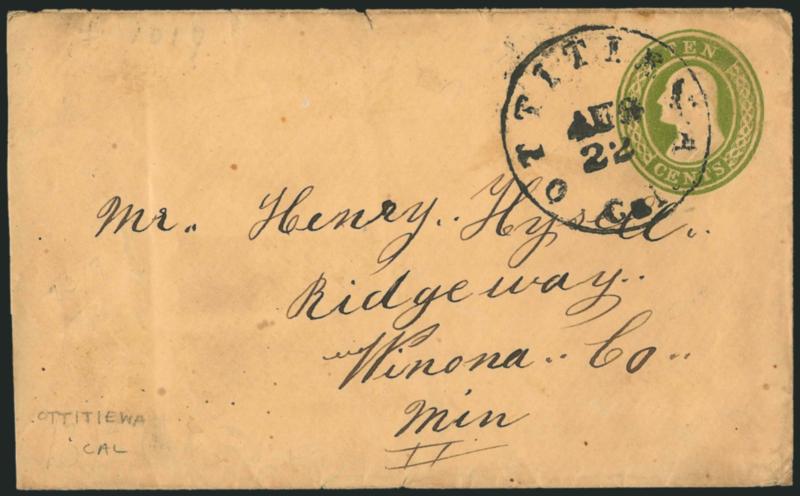 1019
TEN
CENTS
OTTITIEWA
22
Cal
Mr. Henry. Hysell.
Ridgeway.
Winona. Co.
Min
OTTITIEWA
CAL